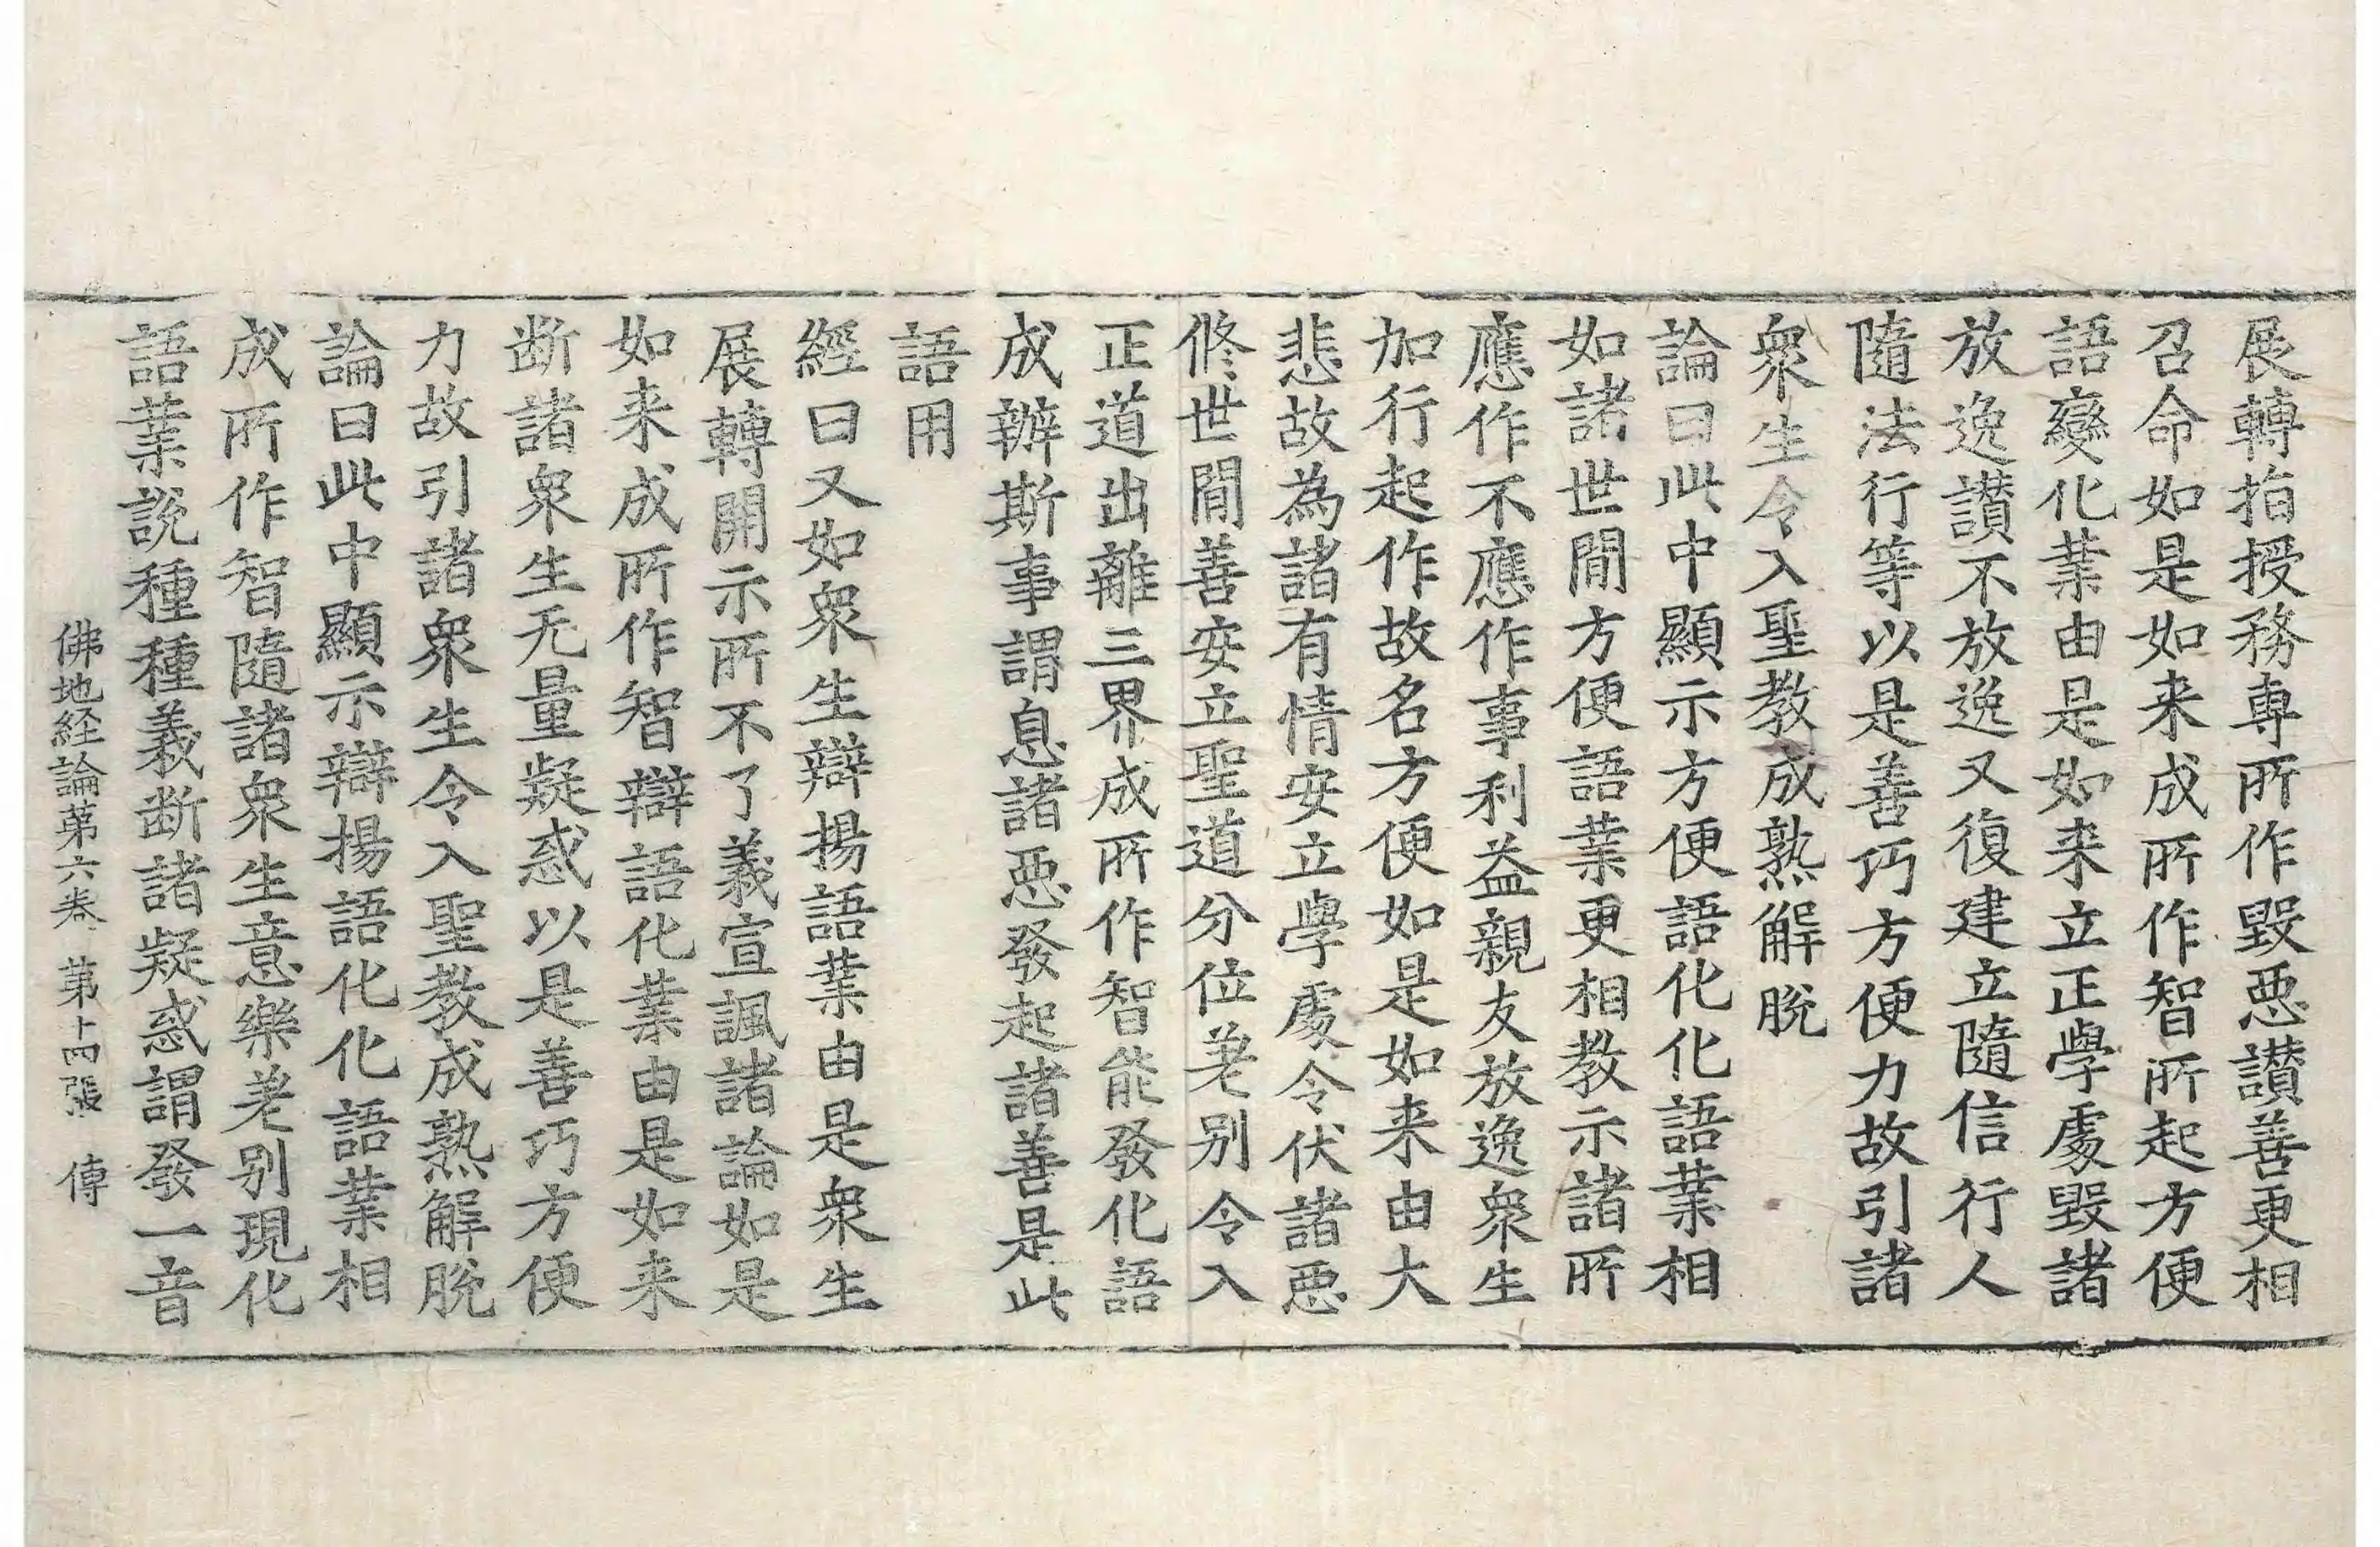 展轉指授務專所作毀惡讃善更相
召命如是如来成所作智所起方便
語變化業由是如来立正學處毀諸
放逸讃不放逸又復建立隨信行人
隨法行等以是善巧方便力故引諸
衆生令入聖教成熟解脫
論曰此中顯示方便語化化語業相
如諸世間方便語業更相教示諸所
應作不應作事利益親友放逸衆生
加行起作故名方便如是如来由大
悲故為諸有情安立學處令伏諸惡
脩世間善安立聖道分位差别令入
正道出離三界成所作智能發化語
成辦斯事謂息諸惡發起諸善是此
語用
經曰又如衆生辯揚語業由是衆生
展轉開示所不了義宣諷諸論如是
如来成所作智辯語化業由是如来
断諸衆生无量疑惑以是善巧方便
力故引諸衆生令入聖教成熟解脫
論曰此中顯示辯揚語化化語業相
成所作智隨諸衆生意樂差别現化
語業說種種義断諸疑惑謂發一音
佛地经論第六卷 第十四張 傳